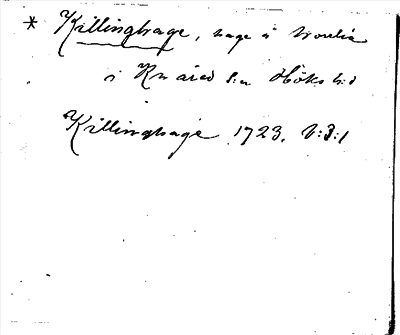 * Killinghage, hage å
i Knäred s:n Höks h:d
Killinghage 1723. V:3:1